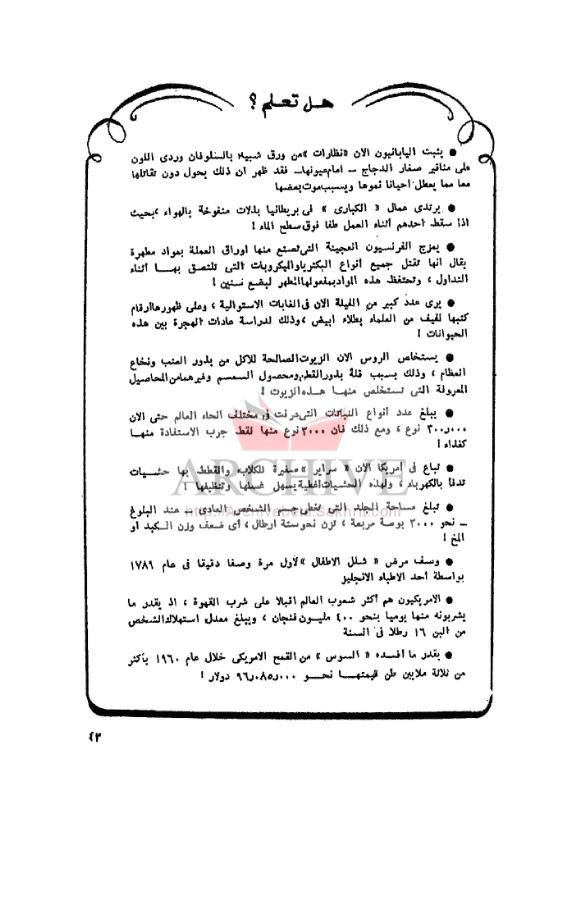 هل تعلم ؟
● يثبت اليابانيون الان «نظارات» من ورق شبيه بالسلوفان وردى اللون
على مناقير صغار الدجاج – امام عيونها – فقد ظهر ان ذلك يحول دون تقاتلها
معا مما يعطل احيانا نموها ويسبب موت بعضها
● يرتدى عمال « الكبارى » فى بريطانيا بذلات منفوخة بالهواء ، بحيث
اذا سقط احدهم أثناء العمل طفا فوق سطح الماء !
● يمزج الفرنسيون العجينة التى تصنع منها اوراق العملة بمواد مطهرة
يقال انها تقتل جميع أنواع البكتريا والميكروبات التى تلتصق بهـــا أثناء
التداول ، وتحتفظ هذه المواد بمفعولها المطهر لبضع سنين !
● يرى عدد كبير من الفيلة الان فى الغابات الاستوائية ، وعلى ظهورها أرقام
كتبها لفيف من العلماء بطلاء ابيض ، وذلك لدراسة عادات الهجرة بين هذه
الحيوانات !
● يستخلص الروس الان الزيوت الصالحة للاكل من بذور العنب ونخاع
العظام ، وذلك بسبب قلة بذور القطن ومحصول السمسم وغيرهما من المحاصيل
المعروفة التى تستخلص منهـا هــذه الزيوت !
● يبلغ عدد أنواع النباتات التى عرفت فى مختلف انحاء العالم حتى الان
٣٠٠ر٠٠٠ نوع ، ومع ذلك فان ٣٠٠٠ نوع منها فقط جرب الاستفادة منهــا
كغذاء !
● تباع فى أمريكا الان « سراير » صغيرة للكلاب والقطط بها حشــيات
تدفأ بالكهرباء ، ولهذه الحشيات أغطية يسهل غسلها وتنظيفها !
● تبلغ مساحة الجلد التى تغطى جسم الشخص العادى – عند البلوغ
– نحو ٣٠٠٠ بوصة مربعة ، تزن نحو ستة ارطال ، أى ضعف وزن الكبد أو
المخ !
● وصف مرض « شلل الاطفال » لأول مرة وصفا دقيقا فى عام ١٧٨٩
بواسطة أحد الاطباء الانجليز
● الامريكيون هم أكثر شعوب العالم اقبالا على شرب القهوة ، اذ يقدر ما
يشربونه منها يوميا بنحو ٤٠٠ مليــون فنجان ، ويبلغ معدل استهلاك الشخص
من البن ١٦ رطلا فى السنة
● يقدر ما أفسده « السوس » من القمح الامريكى خلال عام ١٩٦٠ بأكثر
من ثلاثة ملايين طن قيمتهــــا نحـــو ٩٦ر٠٨٥ر٠٠٠ دولار !
ARCHIVE
http://Archivebeta.Sakhrit.com
٤٣